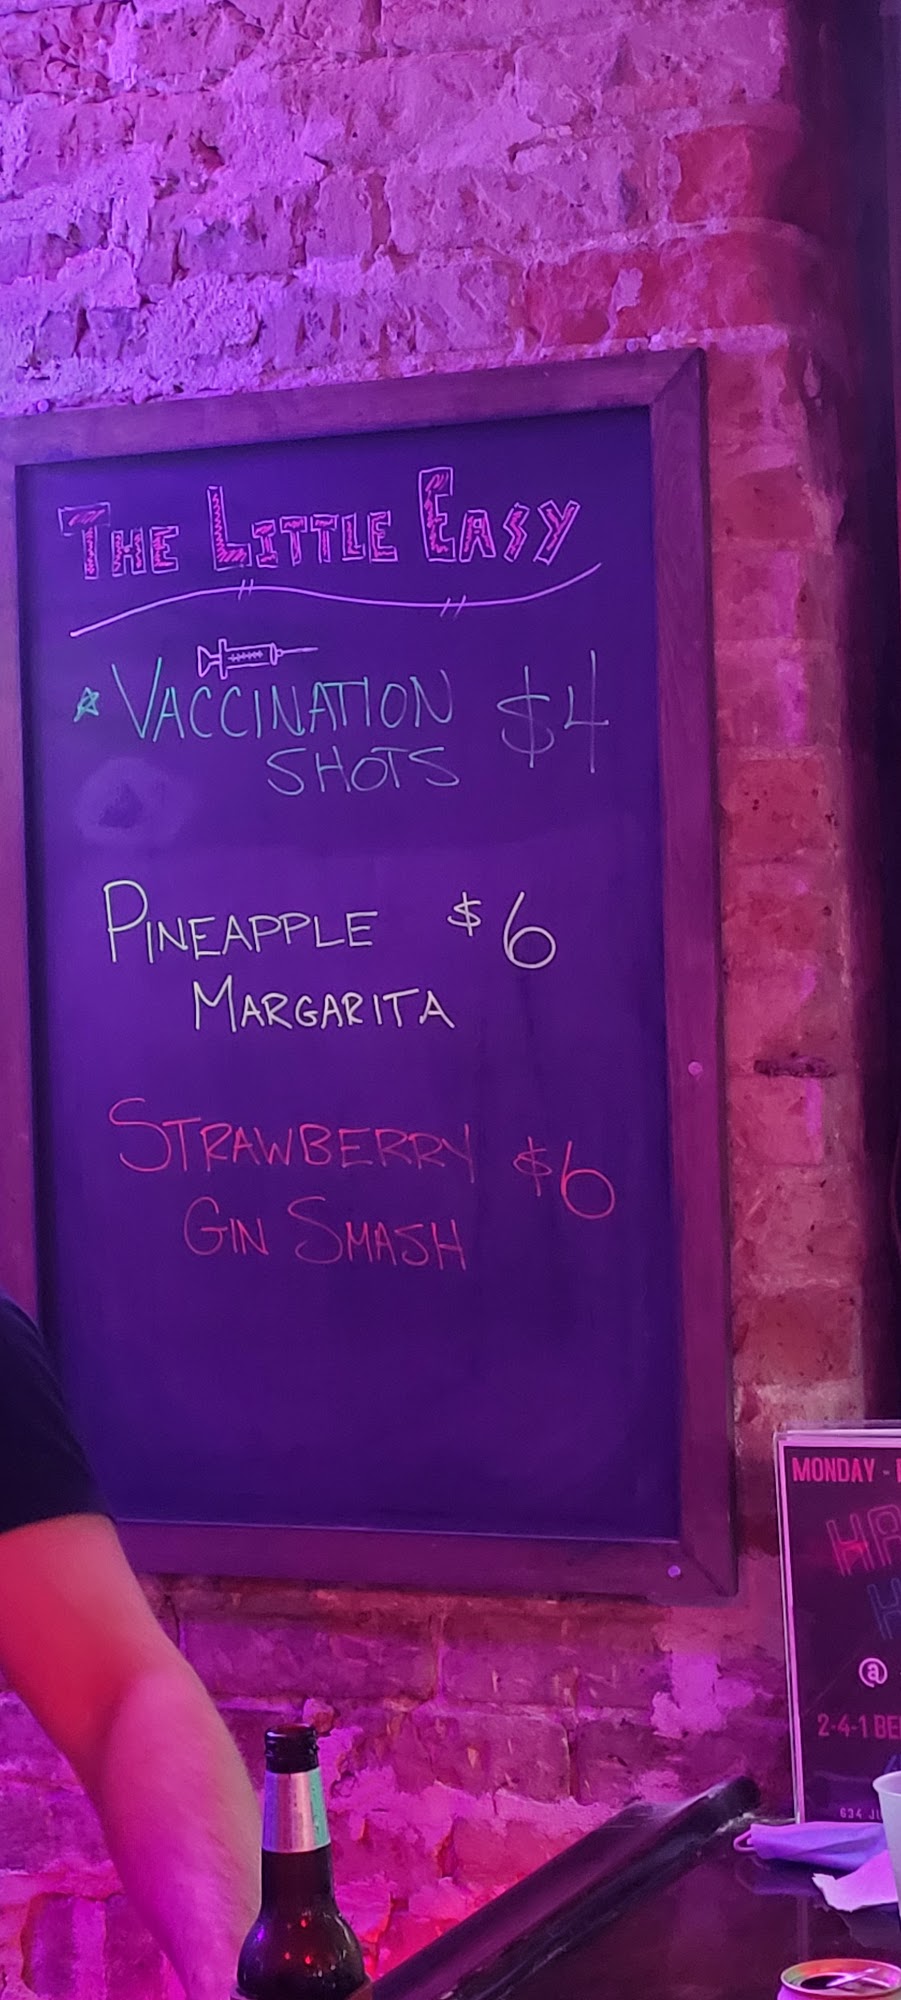 THE LITTLE EASY
VACCINATION $4
SHOTS
PINEAPPLE $6
MARGARITA
STRAWBERRY $6
GIN SMASH
MONDAY -
@
2-4-1
634